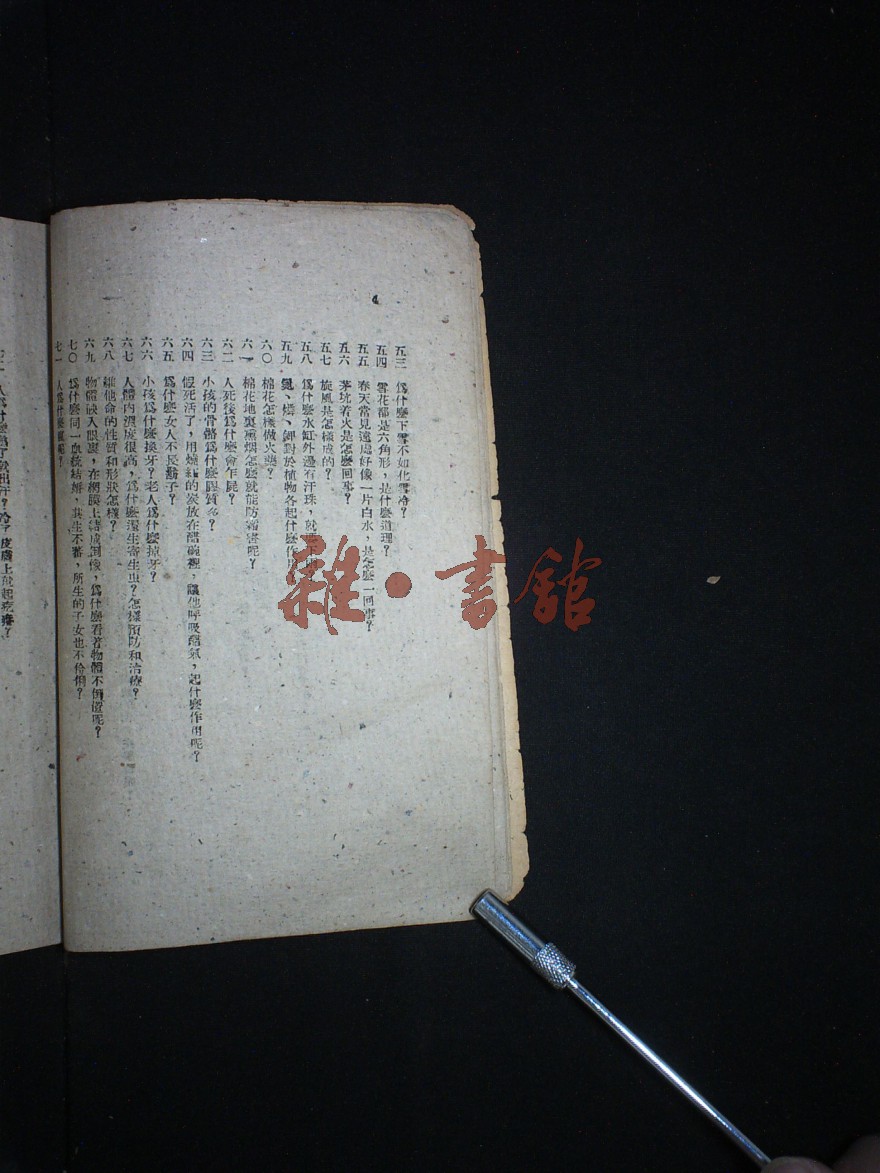 4
五三 爲什麽下雪不如化雪冷？
五四 雪花都是六角形，是什麽道理？
五五 春天常見遠處好像一片白水，是怎麽一回事？
五六 茅坑着火是怎麽回事？
五七 旋風是怎樣成的？
五八 爲什麽水缸外邊有汗珠，就
五九 燐、鉀對於植物各起什麽作用
六〇 棉花怎樣做火藥？
六一 棉花地裏熏烟怎麽就能防霜害呢？
六二 人死後爲什麽會乍屍？
六三 小孩的骨骼爲什麽膠質多？
六四 假死活了，用燒紅的炭放在醋碗裡，讓他呼吸醋氣，起什麽作用呢？
六五 爲什麽女人不長鬍子？
六六 小孩爲什麽換牙？老人爲什麽掉牙？
六七 人體內溫度很高，爲什麽還生寄生虫？怎樣預防和治療？
六八 維他命的性質和形狀怎樣？
六九 物體映入眼裏，在網膜上結成倒像，爲什麽看著物體不倒置呢？
七〇 爲什麽同一血統結婚，其生不蕃，所生的子女也不伶俐？
七一 人爲什麽
出汗？冷了皮膚上就起疙瘩？
雜·書館